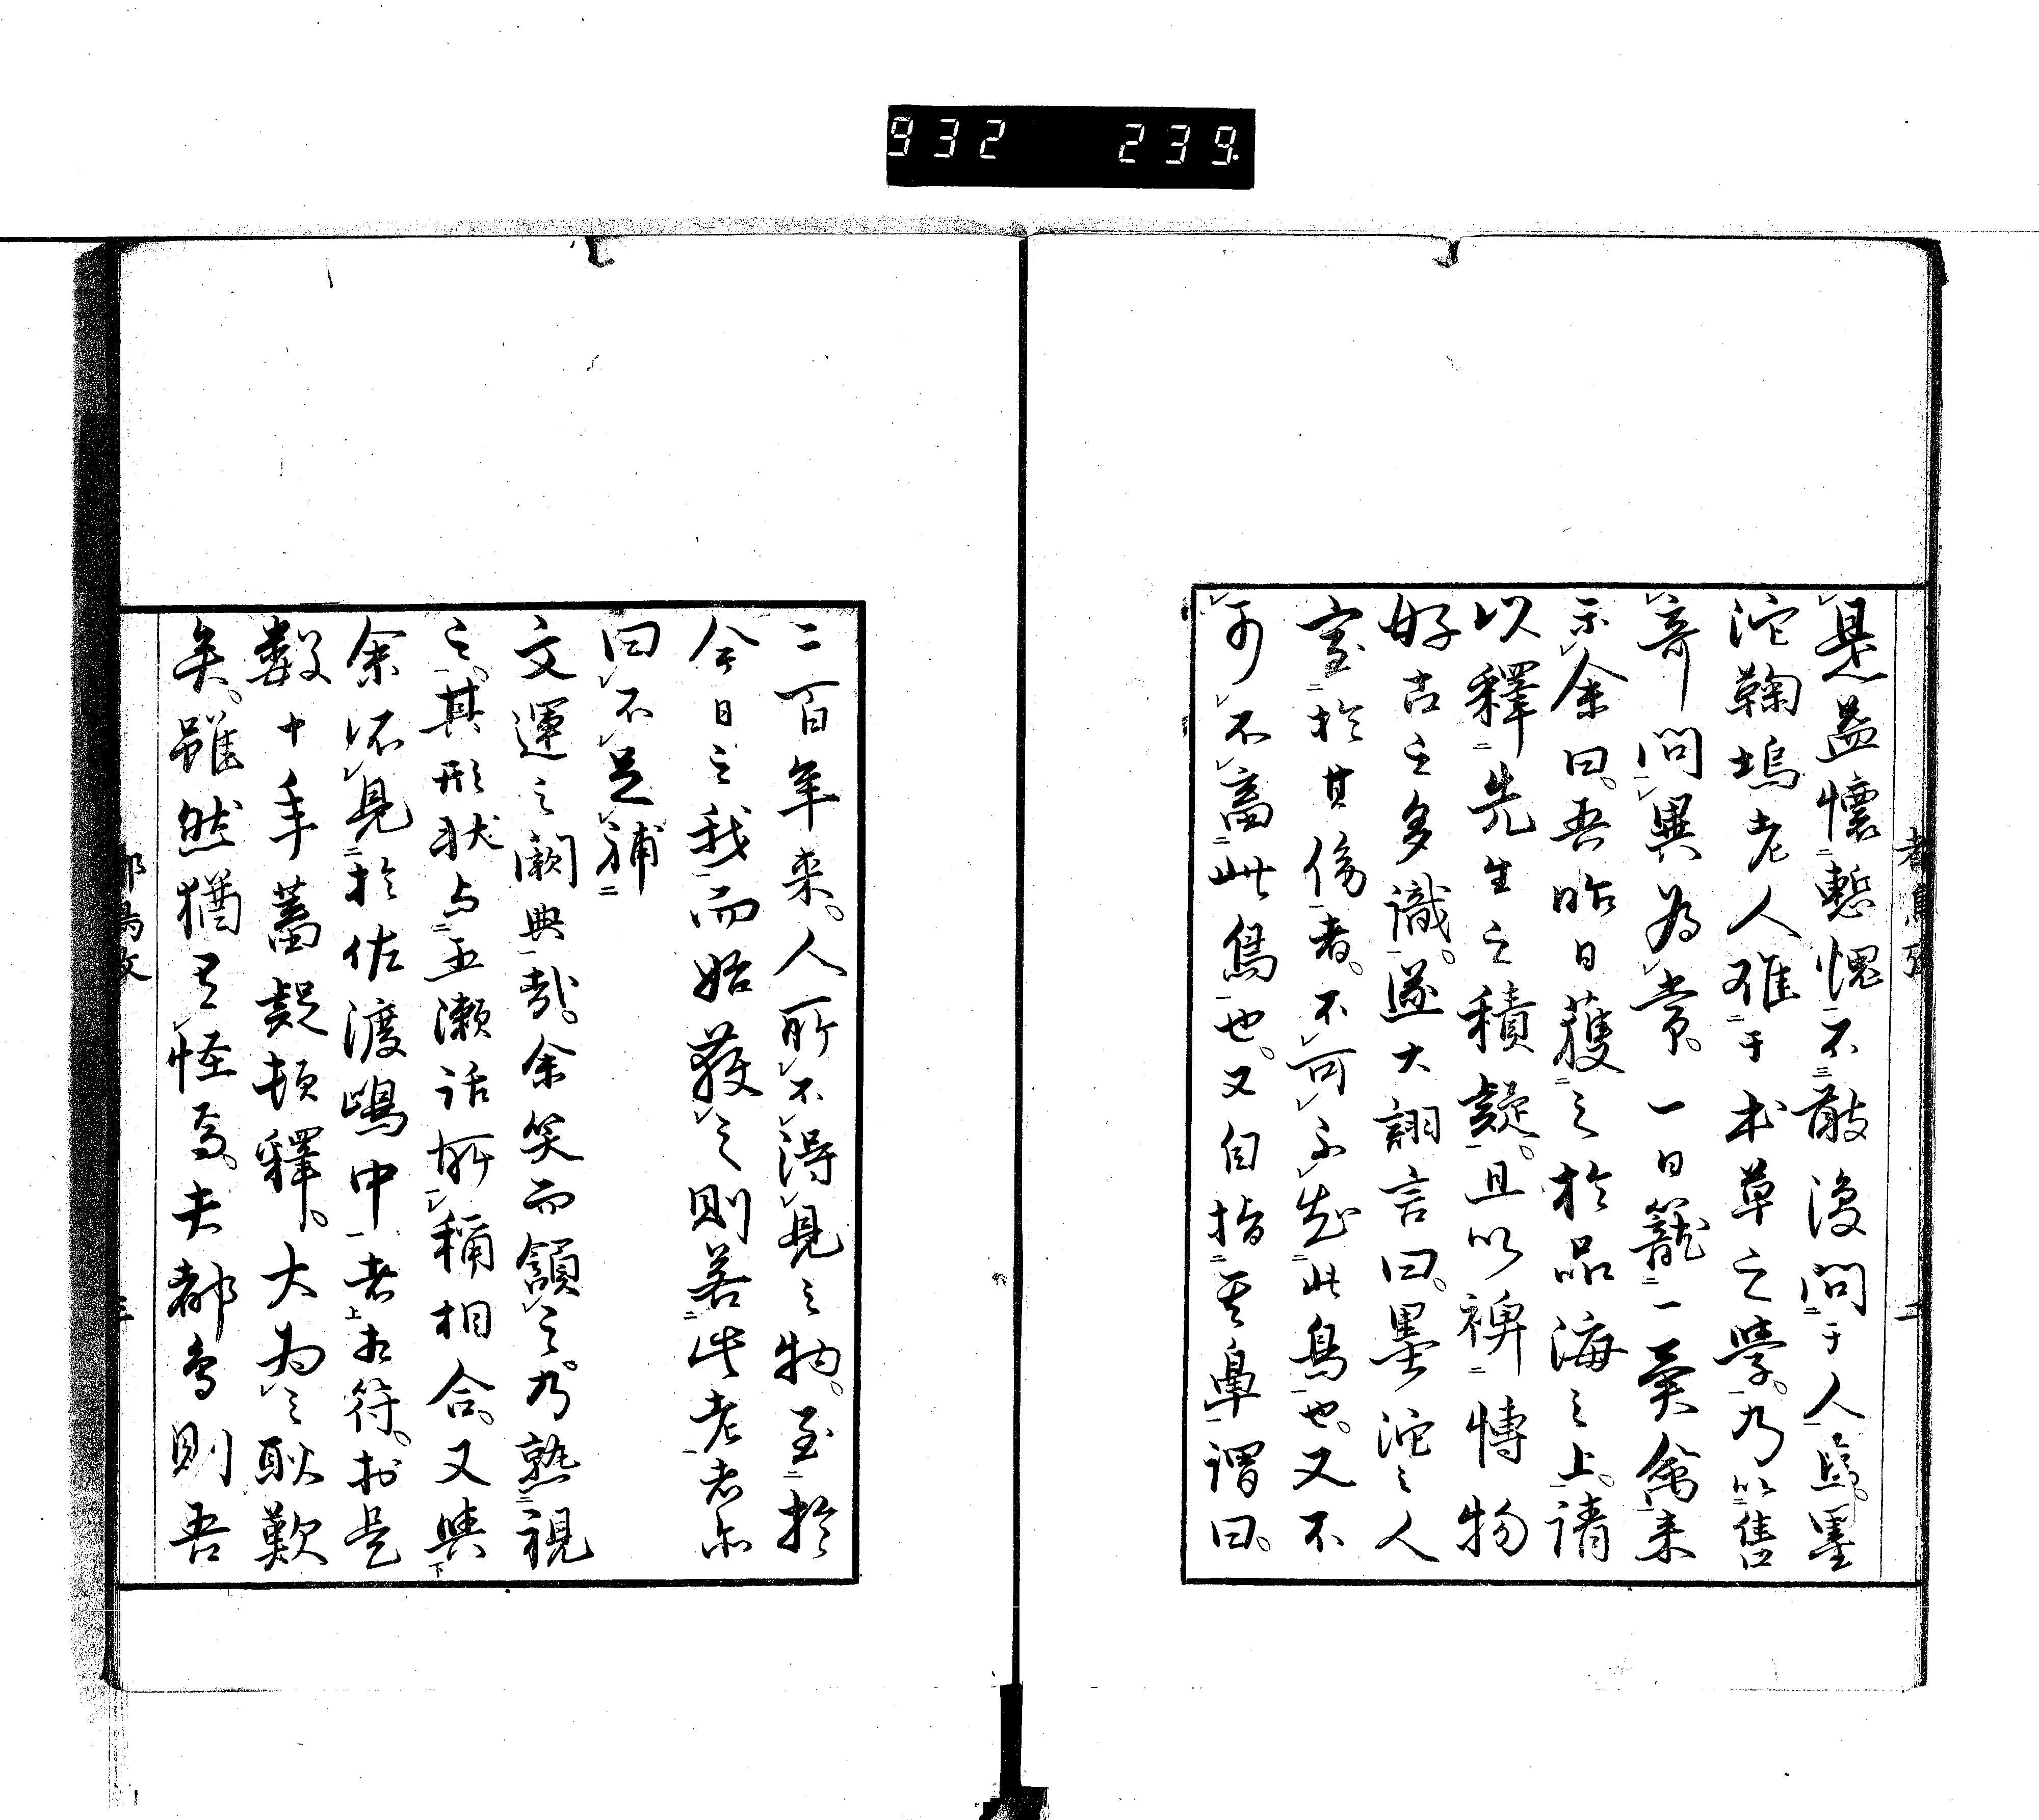 932 239
是益懷慙愧不敢復問于人焉墨
沱鞠塢老人雅于本草之學乃以售
奇問異為常一日籠一奚禽来
示余曰吾昨日獲之於品海之上請
以釋先生之積疑且以裨博物
好古之多識遂大詡言曰墨沱之人
室於其傍者不可不知此鳥也又不
可不畜此鳥也又自指其鼻謂曰
二百年来人所不得見之物至於
今日之我而始獲之則若此老者亦
曰不足補
文運之闕典哉余笑而頷之乃熟視
之其形状与五瀬話所稱相合又與
余所見於佐渡嶋中者相符於是
數十年蓄疑頓釋大為之耿歎
矣雖然猶有怪焉夫都鳥則吾
都鳥攷 二
都鳥攷 三